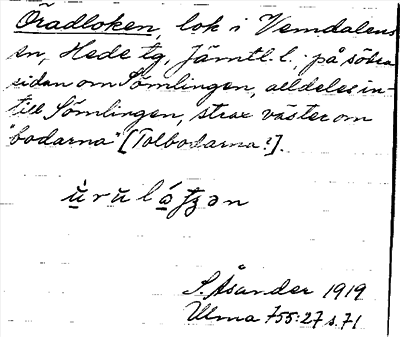 Öradloken, lok i Vemdalens
sn, Hede tg, Jämtl. l., på södra
sidan om Sömlingen, alldeles in-
till Sömlingen, strax väster om
"bodarna" [Tolbodarna?].
S. Åsander 1919
Ulma 755:27 s. 71